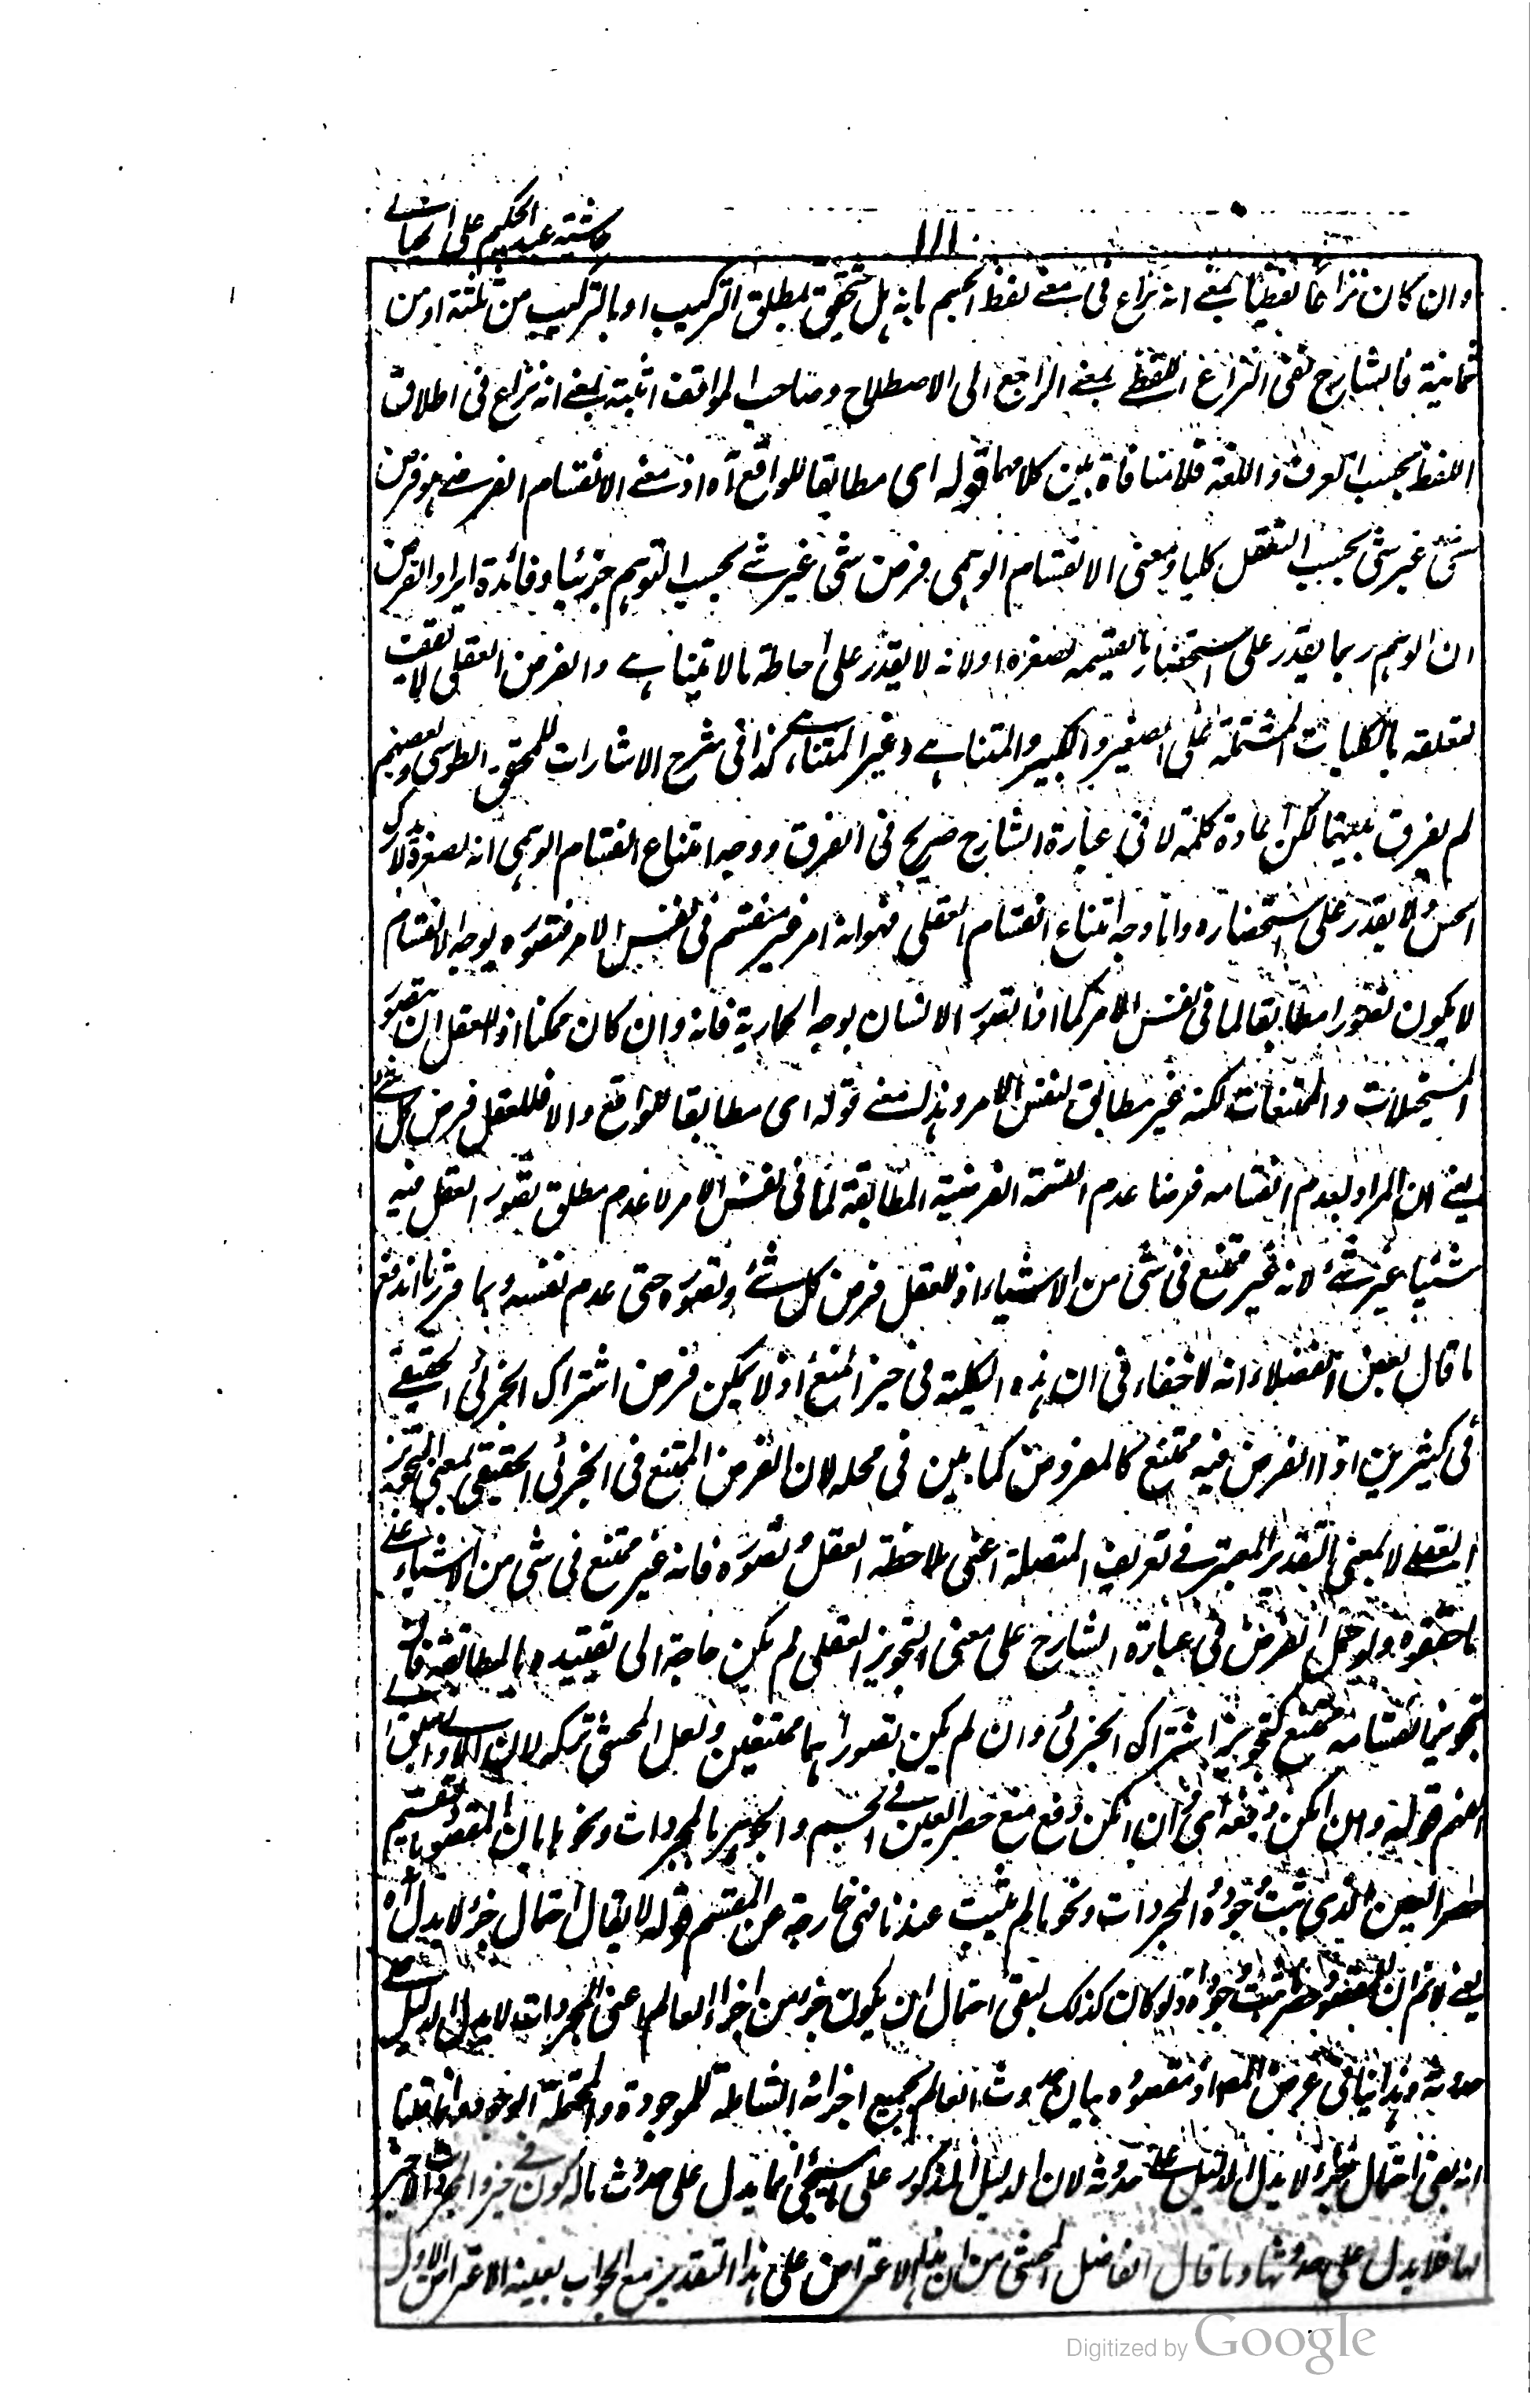 حاشیة عبد الحکیم علی الخیالے
١١١
وان کان نزاعا لفظیا بمعنے انہ نزاع فی معنے لفظ الجسم بانہ ہل یتحقق بمطلق الترکیب او بالترکیب من ثلثة او من
ثمانیة فالشارح نفی النزاع اللفظے بمعنے الراجع الی الاصطلاح وصاحب المواقف اثبتہ بمعنے انہ نزاع فی اطلاق
اللفظ بحسب العرف واللغة فلا منافاة بین کلامہما قولہ ای مطابقا للواقع آہ اذ معنے الانقسام الفرضے ہو فرض
شئ غیر شئ بحسب التعقل کلیا ومعنی الانقسام الوہمی فرض شئ غیر شے بحسب التوہم جزئیا وفائدة ایراد الفرض
ان الوہم ربما یقدر علی استحضار ما یقسمہ لصغرہ اولانہ لا یقدر علی احاطة ما لا یتناہے والفرض العقلی لا یقف
لتعلقہ بالکلیات المشتملة علی الصغیر والکبیر والمتناہے وغیر المتناہے کذا فی شرح الاشارات للمحقق الطوسی وبعضہم
لم یفرق بینہما لکن اعادة کلمة لا فی عبارة الشارح صریح فی الفرق ووجہ امتناع انقسام الوہمی انہ لصغرہ لا یدرک
الحس ولا یقدر علی استحضارہ واما وجہ امتناع انقسام العقلی فہو انہ امر غیر منقسم فی نفس الامر فتصورہ بوجہ الانقسام
لا یکون تصورا مطابقا لما فی نفس الامر کما اذا تصور الانسان بوجہ الحماریة فانہ وان کان ممکنا اذ للعقل ان یتصور
المستحیلات والممتنعات لکنہ غیر مطابق لنفس الامر وہذا معنے قولہ ای مطابقا للواقع والا فللعقل فرض کل شے
یعنے ان المراد بعدم انقسامہ فرضا عدم القسمة الفرضیة المطابقة لما فی نفس الامر لا عدم مطلق تصور العقل فیہ
شیئا غیر شئ لانہ غیر ممتنع فی شئ من الاشیاء اذ للعقل فرض کل شے وتصورہ حتی عدم نفسہ وبما قررنا اندفع
ما قال بعض الفضلاء انہ لا خفاء فی ان ہذہ الکلیة فی حیز المنع اذ لا یمکن فرض اشتراک الجزئی الحقیقے
فی کثیرین اذ الفرض فیہ ممتنع کالمفروض کما بین فی محلہ لان الفرض الممتنع فی الجزئی الحقیقی بمعنی التجویز
العقلے لا بمعنی التقدیر المعتبر فے تعریف المتصلة اعنی ملاحظة العقل وتصورہ فانہ غیر ممتنع فی شئ من الاشیاء علے
ما حققوہ ولو حمل الفرض فی عبارة الشارح علی معنی التجویز العقلی لم یکن حاجة الی تقییدہ بالمطابقة فان
تجویز انقسامہ ممتنع کتجویز اشتراک الجزئی وان لم یکن تصوراہما ممتنعین ولعل المحشی ترکہ لان
قولہ وان امکن دفعہ ای وان امکن دفع منع حصر العین فے الجسم والجوہر بالمجردات ونحوہا بان المقصود
حصر العین الذی ثبت وجودہ والمجردات ونحوہا لم یثبت عندنا فہی خارجة عن المقسم قولہ لا یقال احتمال جزء لا یدل آہ
یعنے لا نم ان المقصود حصر ما ثبت وجودہ ولو کان کذلک لبقی احتمال ان یکون جزء من اجزاء العالم اعنی المجردات لا یدل الدلیل علے
حدوثہ وہذا ینافی غرض المصہ اذ مقصودہ بیان حدوث العالم بجمیع اجزائہ الشاملة للموجودة والمحتملة الوجود وانما قلنا
انہ بقی احتمال جزء لا یدل الدلیل علے حدوثہ لان الدلیل المذکور علی ما سیجئ انما یدل علی حدوث مالہ کون فے حیز والمجردات لا حیز
لہا فلا یدل علی حدوثہا وما قال الفاضل المحشی من ان ہذا الاعتراض علی ہذا التقدیر مع الجواب بعینہ الاعتراض الاول
Digitized by Google